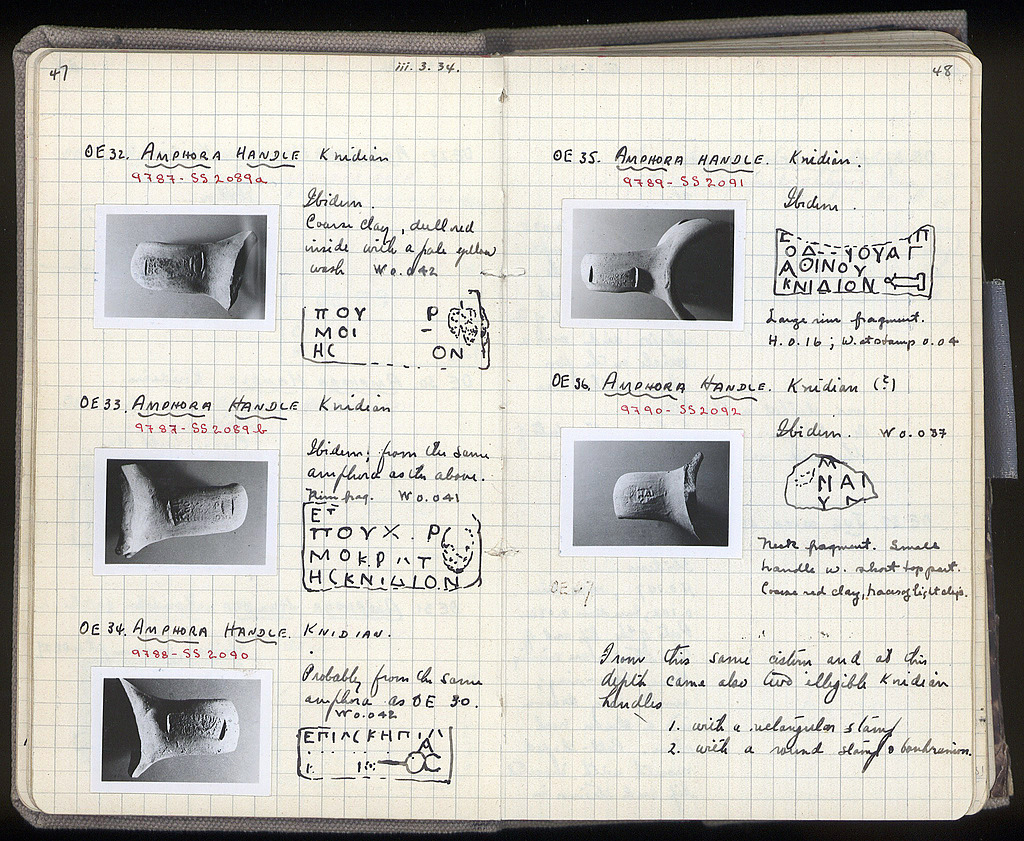 47
iii. 3. 34.
OE 32. AMPHORA HANDLE Knidian
9787 - SS 2089a
Ibidem.
Coarse clay, dull red
inside with a pale yellow
wash W 0.042
ΠΟΥ Ρ
ΜΟΙ
ΗC ΟΝ
OE 33. AMPHORA HANDLE Knidian
9787 - SS 2089b
Ibidem; from the same
amphora as the above.
Rim frag. W 0.041
ΕΤ
ΠΟΥΧ. Ρ
ΜΟΚΡΛΤ
ΗCΚΝΙΔΙΟΝ
OE 34. AMPHORA HANDLE. KNIDIAN.
9788 - SS 2090
Probably from the same
amphora as OE 30.
W 0.042
ΕΠΙΛCΚΗΠΙΛ
Α
ΟC
48
OE 35. AMPHORA HANDLE. Knidian.
9789 - SS 2091
Ibidem.
Ε Π
ΟΔ--ΥΟΥΑΓ
ΑΘΙΝΟΥ
ΚΝΙΔΙΟΝ
Large rim fragment.
H. 0.16; W. at stamp 0.04
OE 36. AMPHORA HANDLE. Knidian (?)
9790 - SS 2092
Ibidem. W 0.037
Μ
ΜΑΙ
ΥΝ
Neck fragment. Small
handle w. short top part.
Coarse red clay, traces of light slip.
From this same cistern and at this
depth came also two illegible Knidian
handles
1. with a rectangular stamp
2. with a round stamp & boukranion.